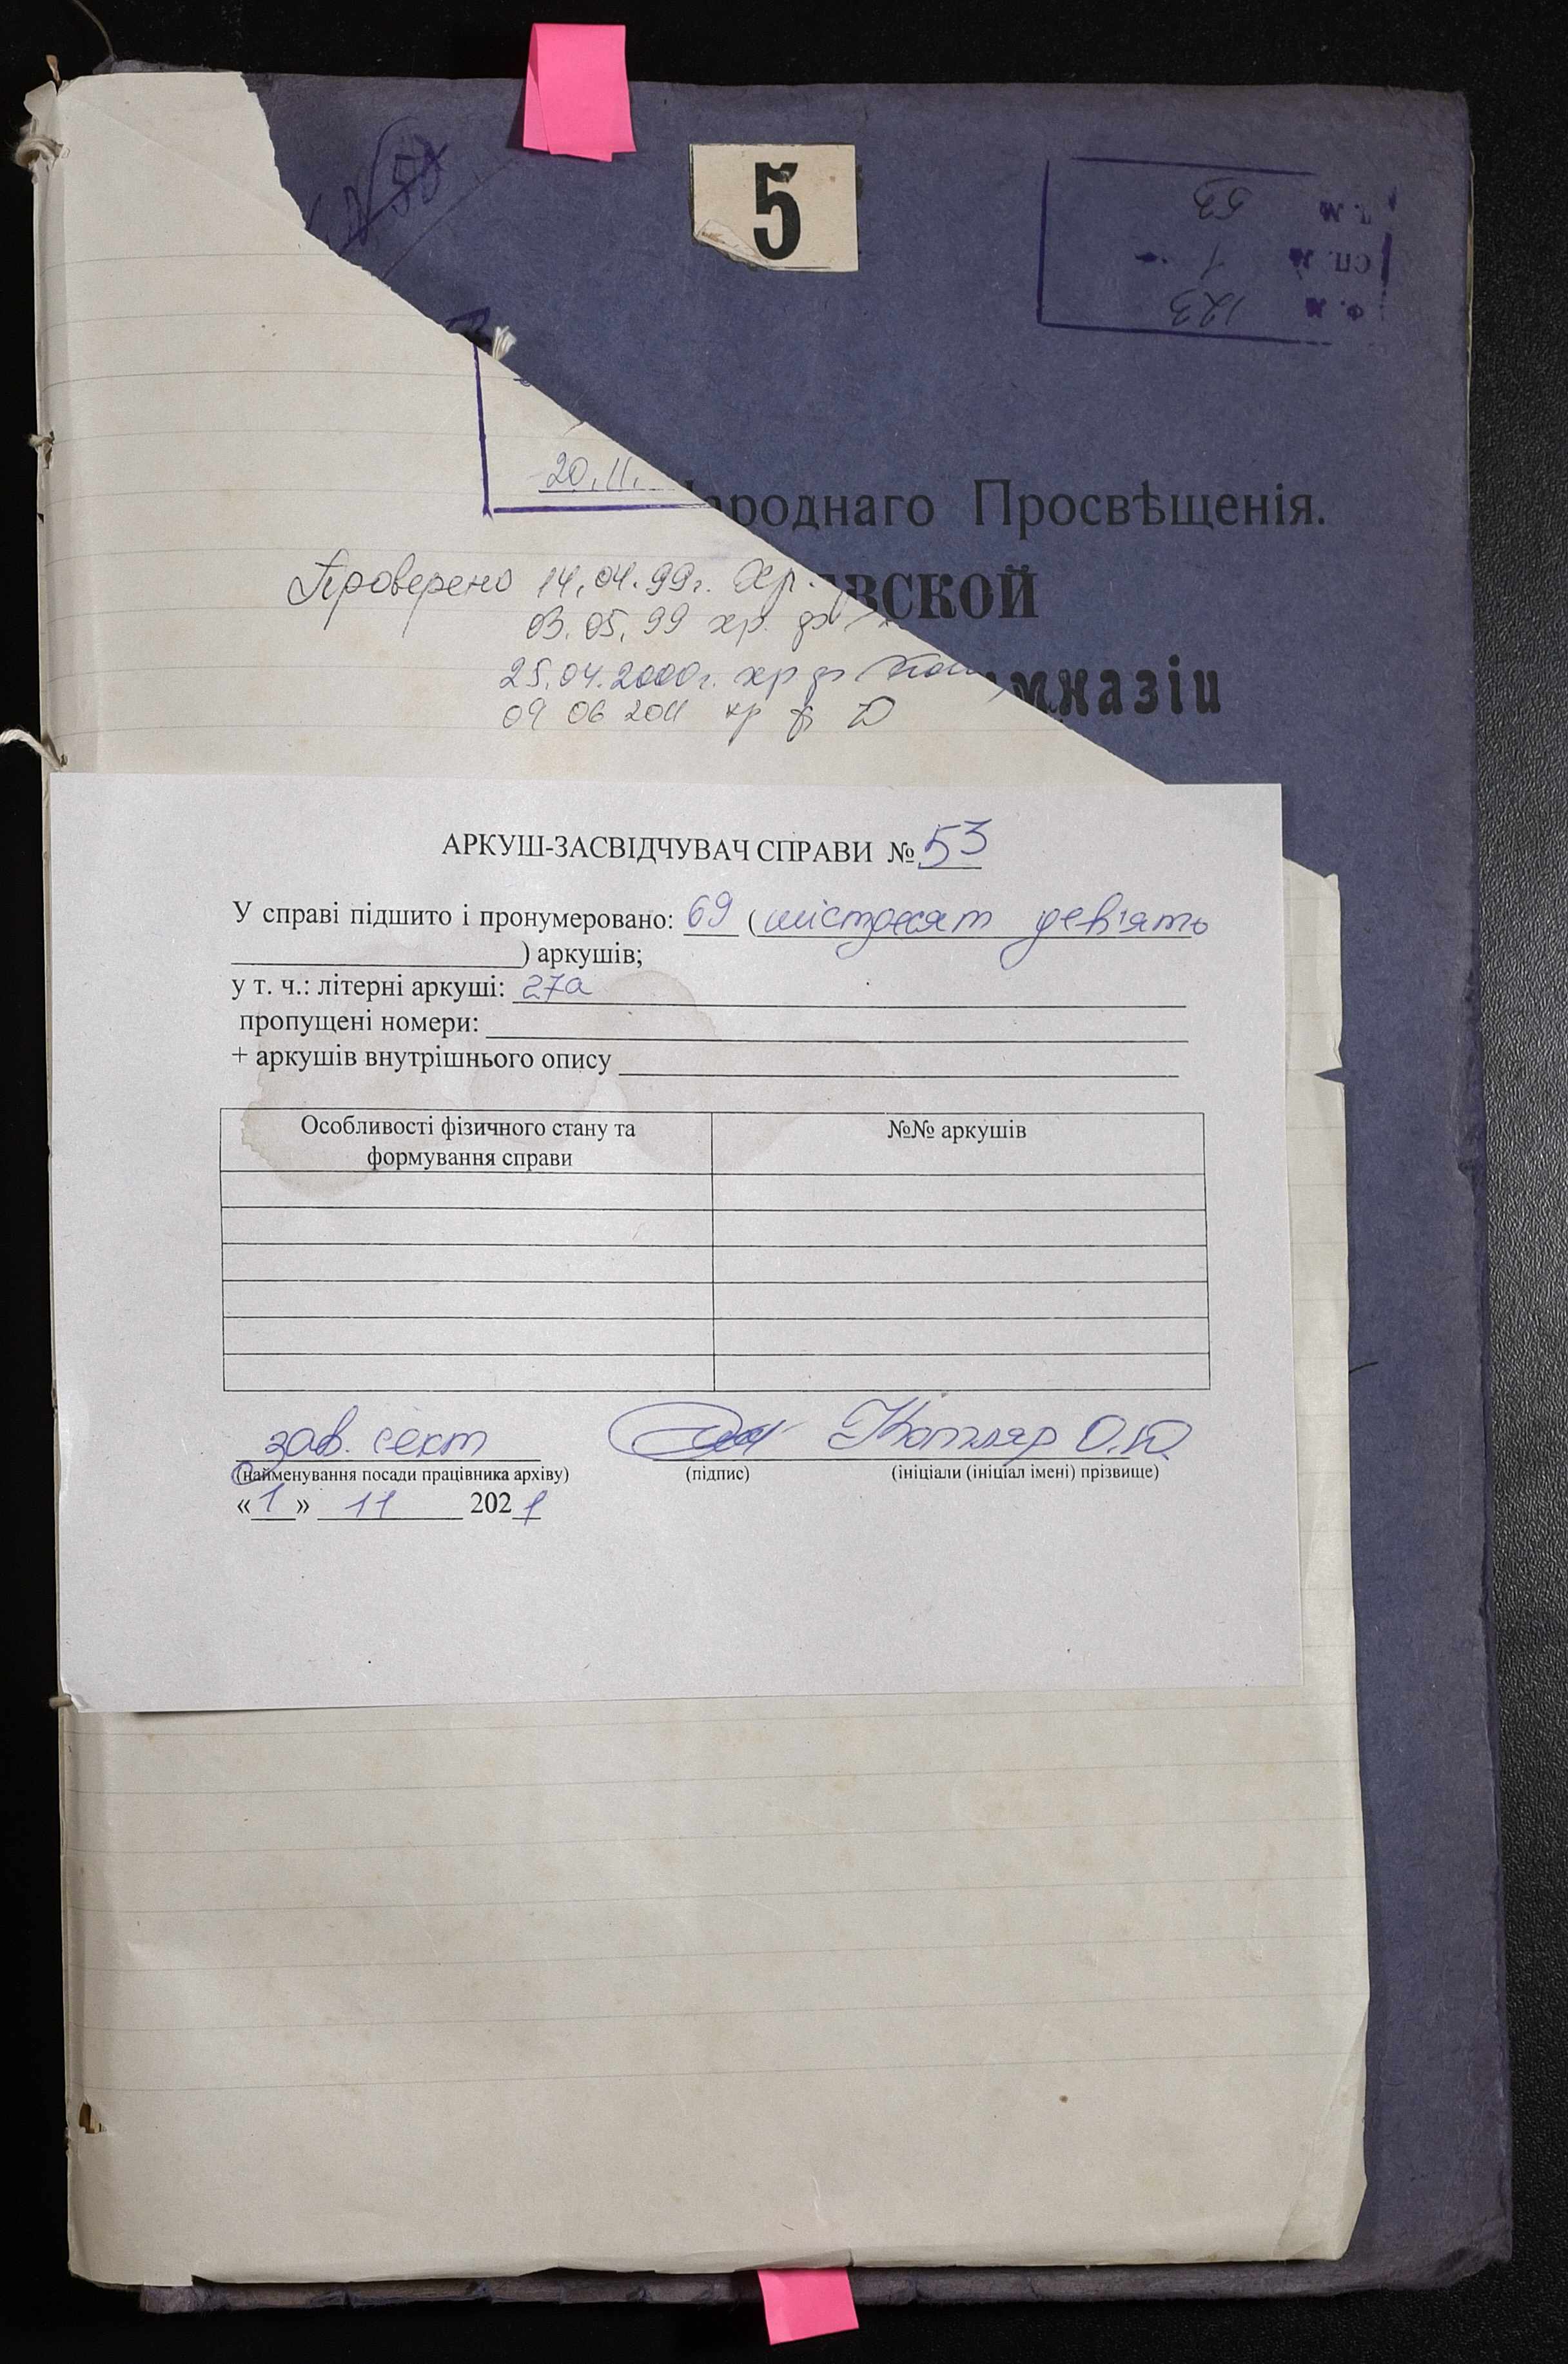 № 53
5
Ф. № 123
оп. № 1
д. № 53
20.11.
Народнаго Просвѣщенія.
ЕВСКОЙ
имназіи
Проверено 14.04.99г. Хр.
03.05.99 хр. ф
25.04.2000г. хр ф
09 06 2011 хр ф
АРКУШ-ЗАСВІДЧУВАЧ СПРАВИ № 53
У справі підшито і пронумеровано: 69 (шістдесят дев'ять
) аркушів;
у т. ч.: літерні аркуші: 27а
пропущені номери:
+ аркушів внутрішнього опису
Особливості фізичного стану та
формування справи
№№ аркушів
зав. сект Котляр О.Ю.
(найменування посади працівника архіву) (підпис) (ініціали (ініціал імені) прізвище)
«1» 11 2021